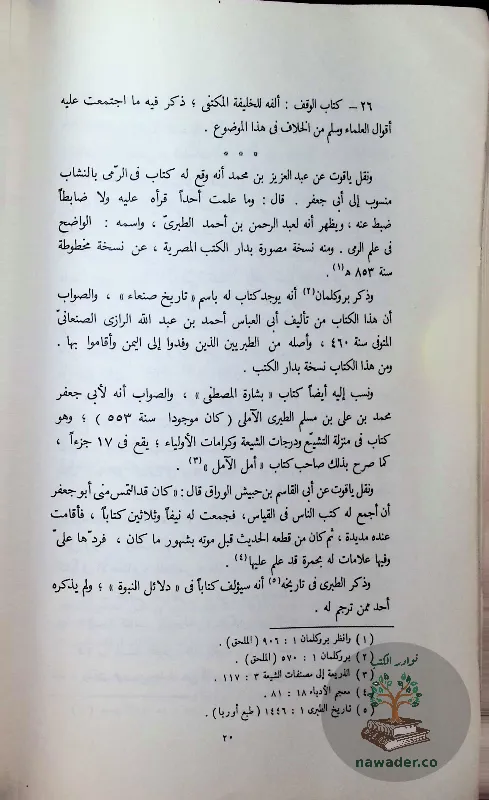 ٢٦ – كتاب الوقف : ألفه للخليفة المكتفى ؛ ذكر فيه ما اجتمعت عليه
أقوال العلماء وسلم من الخلاف فى هذا الموضوع .
* * *
ونقل ياقوت عن عبد العزيز بن محمد أنه وقع له كتاب فى الرّمى بالنشاب
منسوب إلى أبى جعفر . قال : وما علمت أحداً قرأه عليه ولا ضابطاً
ضبط عنه ، ويظهر أنه لعبد الرحمن بن أحمد الطبرىّ ، واسمه : الواضح
فى علم الرمى . ومنه نسخة مصورة بدار الكتب المصرية ، عن نسخة مخطوطة
سنة ٨٥٣ هـ(١) .
وذكر بروكلمان(٢) أنه يوجد كتاب له باسم « تاريخ صنعاء » ، والصواب
أن هذا الكتاب من تأليف أبى العباس أحمد بن عبد الله الرازى الصنعانىّ
المتوفى سنة ٤٦٠ ، وأصله من الطبريين الذين وفدوا إلى اليمن وأقاموا بها .
ومن هذا الكتاب نسخة بدار الكتب .
ونسب إليه أيضاً كتاب « بشارة المصطفى » ، والصواب أنه لأبى جعفر
محمد بن على بن مسلم الطبرى الآملى ( كان موجودا سنة ٥٥٣ ) ؛ وهو
كتاب فى منزلة التشيّع ودرجات الشيعة وكرامات الأولياء ؛ يقع فى ١٧ جزءاً ،
كما صرح بذلك صاحب كتاب « أمل الآمل »(٣) .
ونقل ياقوت عن أبى القاسم بن حبيش الوراق قال : « كان قد التمس منى أبو جعفر
أن أجمع له كتب الناس فى القياس ، فجمعت له نيفاً وثلاثين كتاباً ، فأقامت
عنده مديدة ، ثم كان من قطعه الحديث قبل موته بشهور ما كان ، فردّها علىّ
وفيها علامات له بحمرة قد علم عليها(٤) .
وذكر الطبرى فى تاريخه(٥) أنه سيؤلف كتاباً فى « دلائل النبوة » ؛ ولم يذكره
أحد ممن ترجم له .
(١) وانظر بروكلمان ١ : ٩٠٦ ( الملحق ) .
(٢) بروكلمان ١ : ٥٧٠ ( الملحق ) .
(٣) الذريعة إلى مصنفات الشيعة ٣ : ١١٧ .
(٤) معجم الأدباء ١٨ : ٨١ .
(٥) تاريخ الطبرى ١ : ١٤٤٦ ( طبع أوربا ) .
٢٠
نوادر الكتب
nawader.co